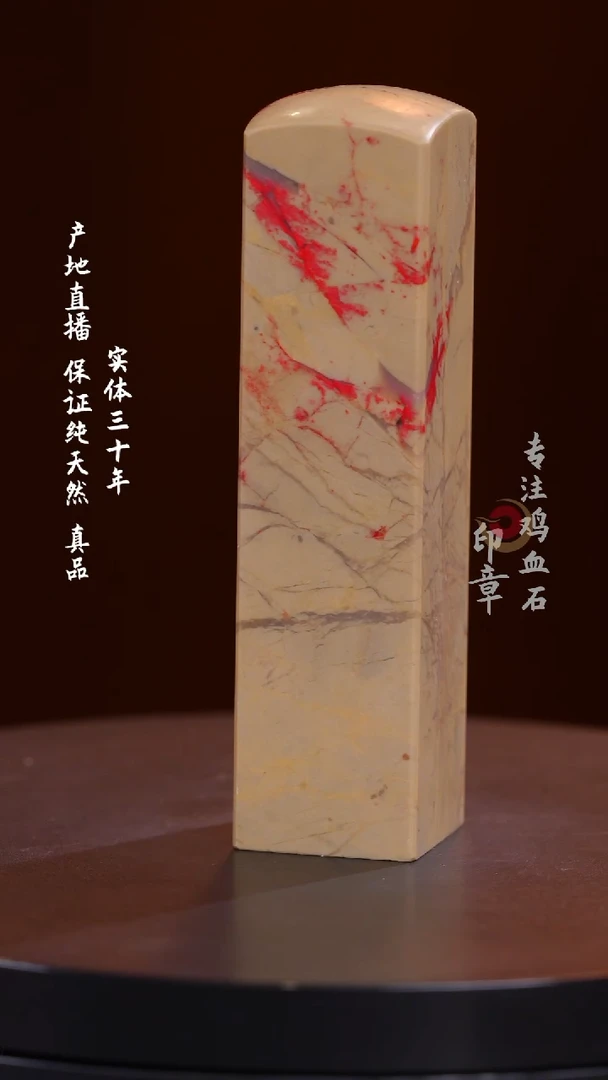 实体三十年
产地直播 保证纯天然 真品
专注鸡血石
印章